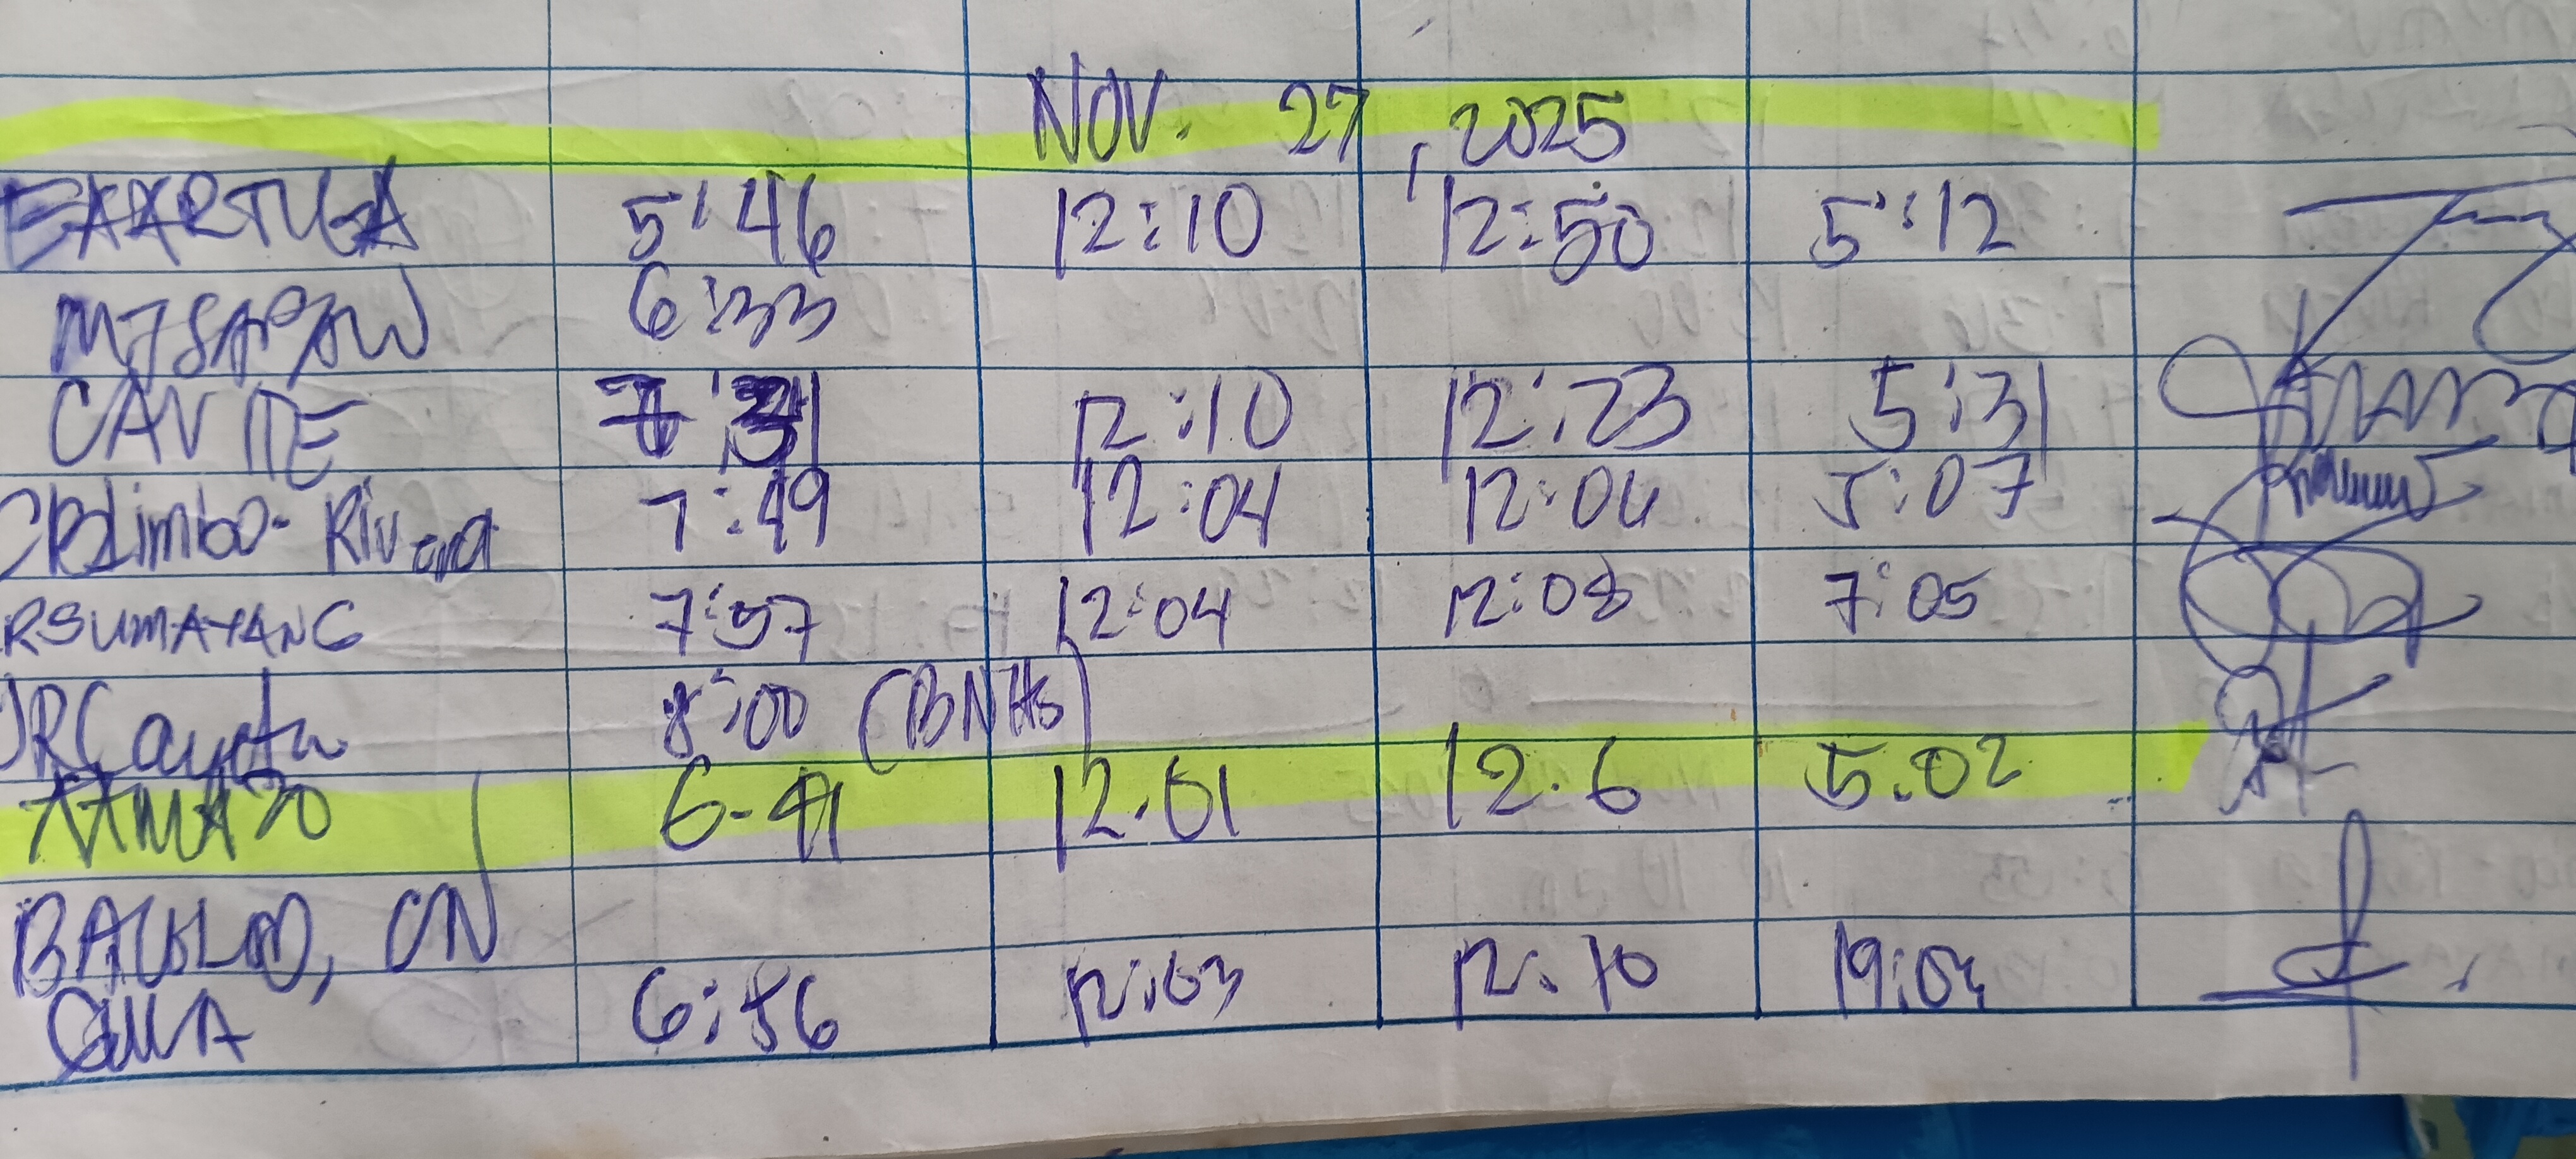 NOV. 27, 2025
EAARTUGA 5:46 12:10 12:50 5:12
MJSAPAW 6:33
CAVITE 7:31 12:10 12:23 5:31
CRLimbo-Rivera 7:49 12:04 12:06 5:07
RSUMAYANG 7:57 12:04 12:08 7:05
JRCayeta 8:00 (BNHS)
6-41 12.01 12.6 5.02
6:56 12:03 12:10